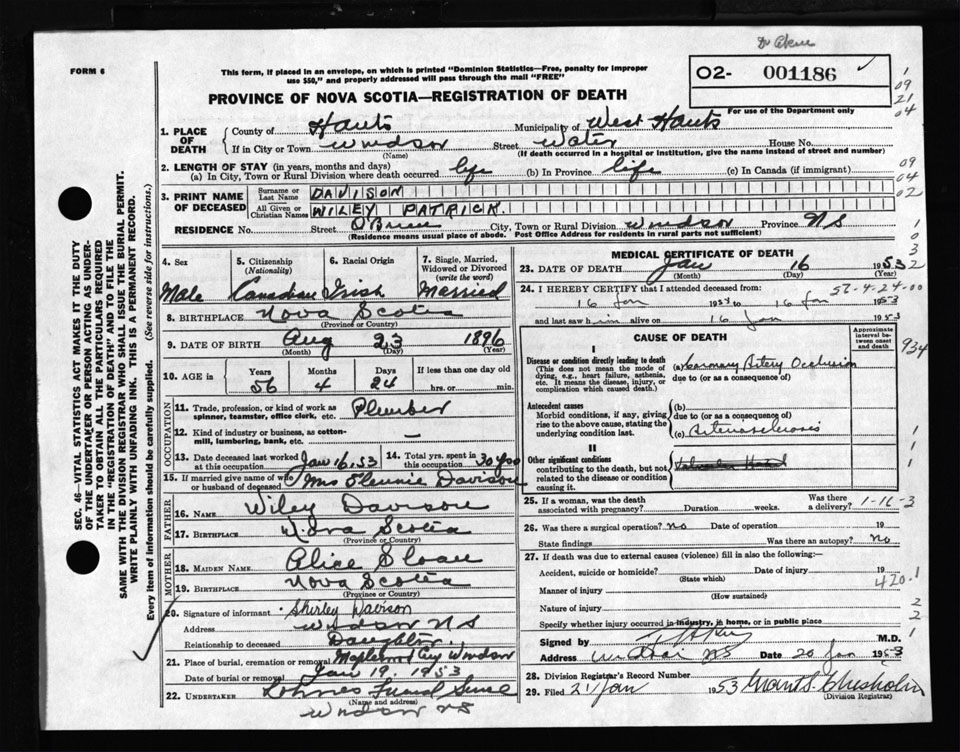 FORM 6
This form, if placed in an envelope, on which is printed "Dominion Statistics—Free, penalty for improper
use $50," and properly addressed will pass through the mail "FREE"
02- 001186
For use of the Department only
PROVINCE OF NOVA SCOTIA—REGISTRATION OF DEATH
1. PLACE OF DEATH
County of Hants Municipality of West Hants
If in City or Town Windsor Street Water House No.
(Name) (If death occurred in a hospital or institution, give the name instead of street and number)
2. LENGTH OF STAY (in years, months and days)
(a) In City, Town or Rural Division where death occurred life (b) In Province life (c) In Canada (if immigrant)
3. PRINT NAME OF DECEASED
Surname or Last Name DAVISON
All Given or Christian Names WILEY PATRICK.
RESIDENCE No. Street O'Brien City, Town or Rural Division Windsor Province NS
(Residence means usual place of abode. Post Office Address for residents in rural parts not sufficient)
4. Sex
Male
5. Citizenship
(Nationality)
Canadian
6. Racial Origin
Irish
7. Single, Married,
Widowed or Divorced
(write the word)
Married
8. BIRTHPLACE Nova Scotia
(Province or Country)
9. DATE OF BIRTH Aug 23 1896
(Month) (Day) (Year)
10. AGE in
Years Months Days If less than one day
56 4 24 hrs. or min.
OCCUPATION
11. Trade, profession, or kind of work as
spinner, teamster, office clerk, etc. Plumber
12. Kind of industry or business, as cotton-
mill, lumbering, bank, etc. —
13. Date deceased last worked
at this occupation Jan 16.53
14. Total yrs. spent in
this occupation 30 yrs
15. If married give name of wife
or husband of deceased Mrs Davison
FATHER
16. Name Wiley Davison
17. BIRTHPLACE Nova Scotia
(Province or Country)
MOTHER
18. MAIDEN NAME Alice Sloan
19. BIRTHPLACE Nova Scotia
(Province or Country)
20. Signature of informant Shirley Davison
Address Windsor NS
Relationship to deceased Daughter
21. Place of burial, cremation or removal Windsor
Date of burial or removal Jan 19. 1953
22. UNDERTAKER Lohnes Funeral
(Name and address)
Windsor NS
MEDICAL CERTIFICATE OF DEATH
23. DATE OF DEATH Jan 16 1953
(Month) (Day) (Year)
24. I HEREBY CERTIFY that I attended deceased from:
16 Jan to 16 Jan 1953
and last saw him alive on 16 Jan 1953
CAUSE OF DEATH
Approximate
interval be-
tween onset
and death
I
Disease or condition directly leading to death
(This does not mean the mode of
dying, e.g., heart failure, asthenia,
etc. It means the disease, injury, or
complication which caused death.)
(a) Coronary Artery Occlusion
due to (or as a consequence of)
Antecedent causes
Morbid conditions, if any, giving
rise to the above cause, stating the
underlying condition last.
(b)
due to (or as a consequence of)
(c) Arteriosclerosis
II
Other significant conditions
contributing to the death, but not
related to the disease or condition
causing it.
25. If a woman, was the death
associated with pregnancy? Duration weeks. Was there
a delivery?
1-16-3
26. Was there a surgical operation? no Date of operation 19
State findings Was there an autopsy? no
27. If death was due to external causes (violence) fill in also the following:—
Accident, suicide or homicide? Date of injury 19
(State which)
Manner of injury 420.1
(How sustained)
Nature of injury
Specify whether injury occurred in industry, in home, or in public place
Signed by M.D.
Address Windsor NS Date 20 Jan 1953
28. Division Registrar's Record Number
29. Filed 21 Jan 1953 Grant S. Chisholm
(Division Registrar)
SEC. 46—VITAL STATISTICS ACT MAKES IT THE DUTY
OF THE UNDERTAKER OR PERSON ACTING AS UNDER-
TAKER TO OBTAIN ALL THE PARTICULARS REQUIRED
IN THE "REGISTRATION OF DEATH" AND TO FILE THE
SAME WITH THE DIVISION REGISTRAR WHO SHALL ISSUE THE BURIAL PERMIT.
WRITE PLAINLY WITH UNFADING INK. THIS IS A PERMANENT RECORD.
Every item of information should be carefully supplied. (See reverse side for instructions.)
1
09
21
04
09
04
02
1
0
3
2
52-4-24-00
934
1
1
1
2
2
1